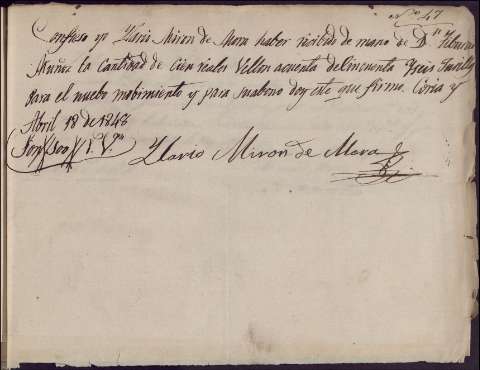 Nº 47
Confieso yo Ylario Miron de Mora haber recibido de mano de Dⁿ
Muñoz la Cantidad de Cien reales Vellon acuenta de
para el nuebo mobimiento y para su abono doy este que firmo. Coria y
Abril 18 de 1848
Son 100 rˢ Vⁿ
Ylario Miron de Mora